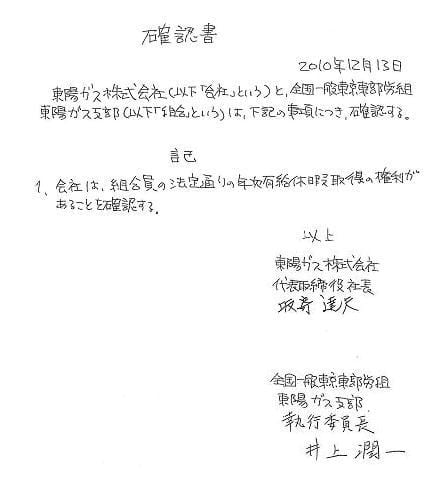 確認書
2010年12月13日
東陽ガス株式会社(以下「会社」という)と、全国一般東京東部労組
東陽ガス支部(以下「組合」という)は、下記の事項につき、確認する。
記
1、会社は、組合員の法定通りの年次有給休暇取得の権利が
あることを確認する。
以上
東陽ガス株式会社
代表取締役社長
全国一般東京東部労組
東陽ガス支部
執行委員長
井上潤一